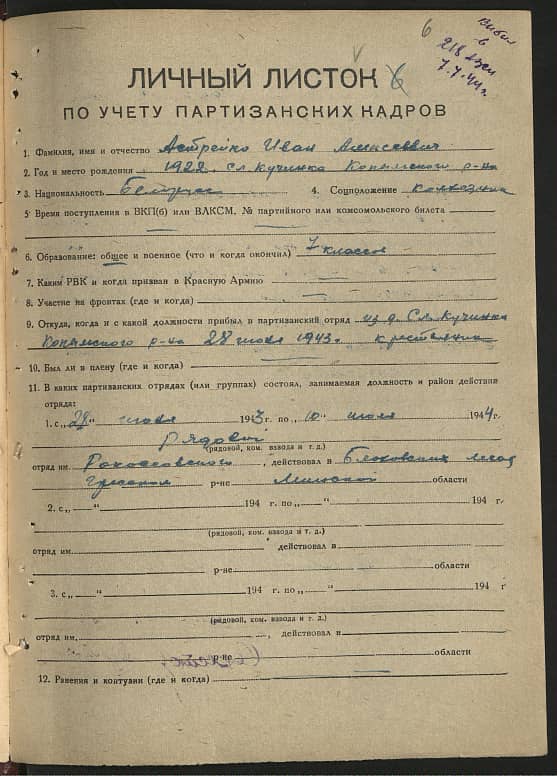 6
Выбыл
в
218 азсп
7.7.44г.
ЛИЧНЫЙ ЛИСТОК 6
ПО УЧЕТУ ПАРТИЗАНСКИХ КАДРОВ
1. Фамилия, имя и отчество Астрейко Иван Алексеевич
2. Год и место рождения 1922. сл. Кучинка Копыльского р-на
3. Национальность Белорус 4. Соцположение колхозник
5. Время поступления в ВКП(б) или ВЛКСМ, № партийного или комсомольского билета
6. Образование: общее и военное (что и когда окончил) 7 классов
7. Каким РВК и когда призван в Красную Армию
8. Участие на фронтах (где и когда)
9. Откуда, когда и с какой должности прибыл в партизанский отряд из д. Сл. Кучинка
Копыльского р-на 28 июня 1943г. крестьянин
10. Был ли в плену (где и когда)
11. В каких партизанских отрядах (или группах) состоял, занимаемая должность и район действия
отряда:
1. с „28" июня 1943 г. по „10" июля 1944 г.
Рядовой
(рядовой, ком. взвода и т. д.)
отряд им. Рокоссовского, действовал в лесах
р-не Минской области
2. с „ " 194 г. по „ " 194 г.
(рядовой, ком. взвода и т. д.)
отряд им. действовал в
р-не области
3. с „ " 194 г. по „ " 194 г
(рядовой, ком. взвода и т. д.)
отряд им. , действовал в
р-не области
12. Ранения и контузии (где и когда)